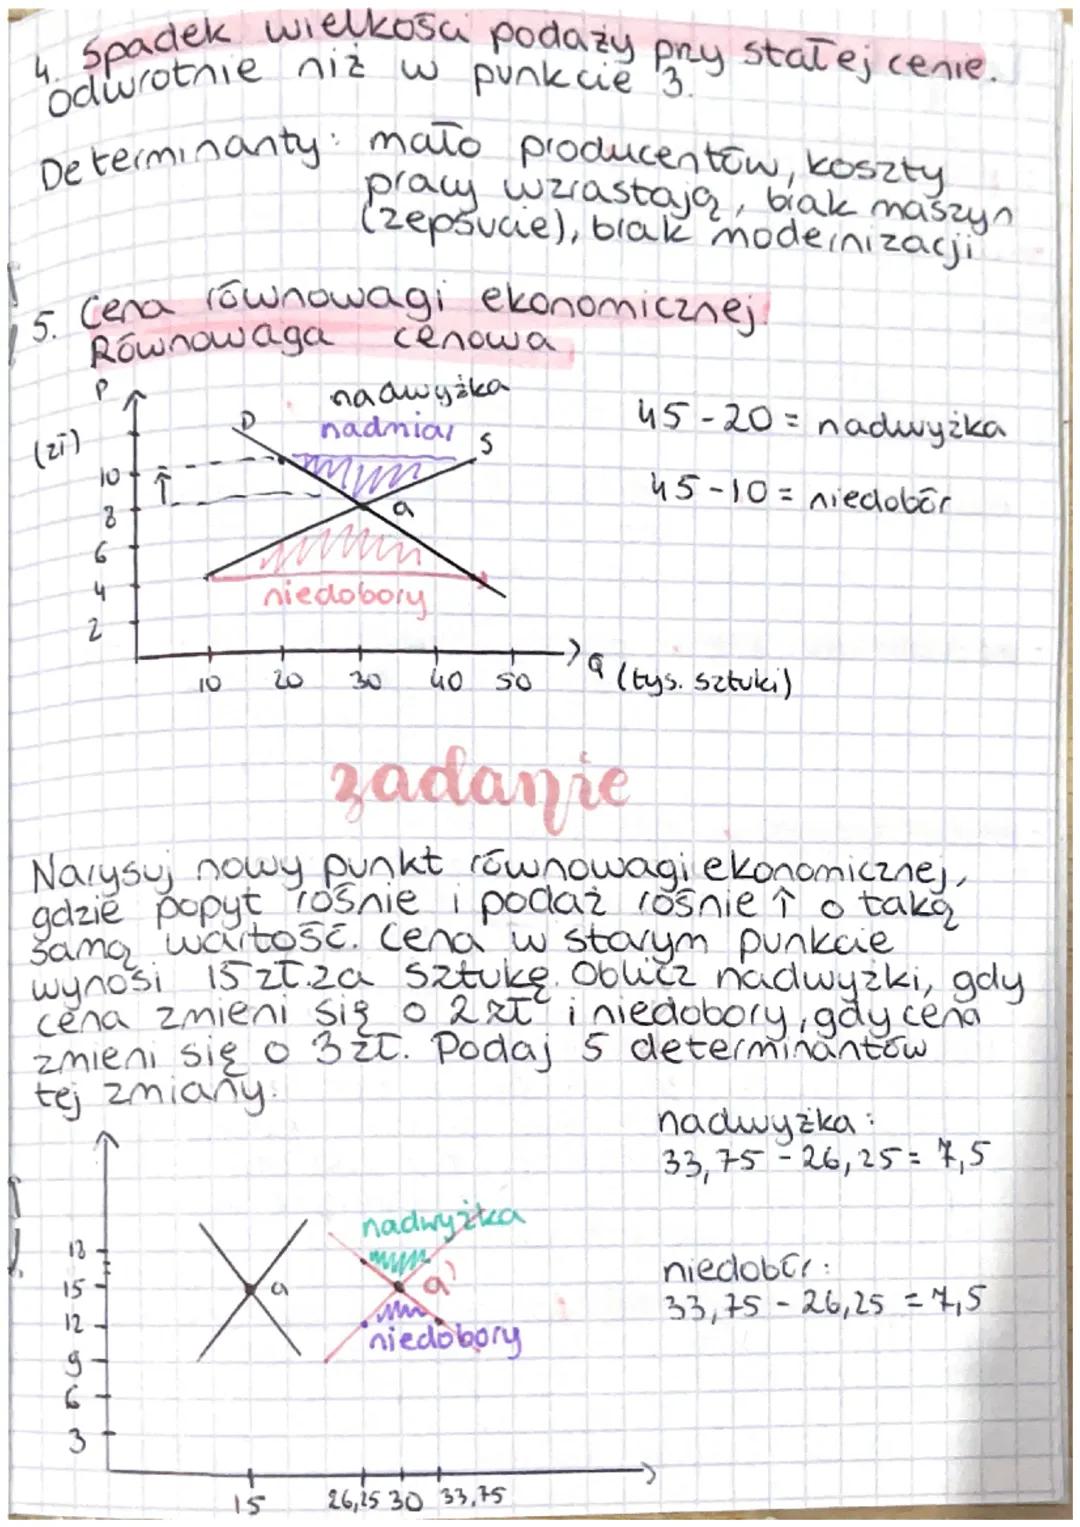 4. Spadek wielkości podaży przy stałej cenie.
odwrotnie niż w punkcie 3.
Determinanty: mało producentów, koszty
pracy wzrastają, brak maszyn
(zepsucie), brak modernizacji
5. Cena równowagi ekonomicznej.
Równowaga cenowa
P
(zł)
nadwyżka
nadmiar
D
S
a
niedobory
10
8
6
4
2
10 20 30 40 50
Q (tys. sztuki)
45 - 20 = nadwyżka
45 - 10 = niedobór
zadanie
Narysuj nowy punkt równowagi ekonomicznej,
gdzie popyt rośnie i podaż rośnie ↑ o taką
samą wartość. Cena w starym punkcie
wynosi 15 zł.za sztukę. Oblicz nadwyżki, gdy
cena zmieni się o 2 zł i niedobory, gdy cena
zmieni się o 3 zł. Podaj 5 determinantów
tej zmiany.
nadwyżka:
33,75 - 26,25 = 7,5
niedobór:
33,75 - 26,25 = 7,5
nadwyżka
a
a'
niedobory
18
15
12
9
6
3
15 26,25 30 33,75